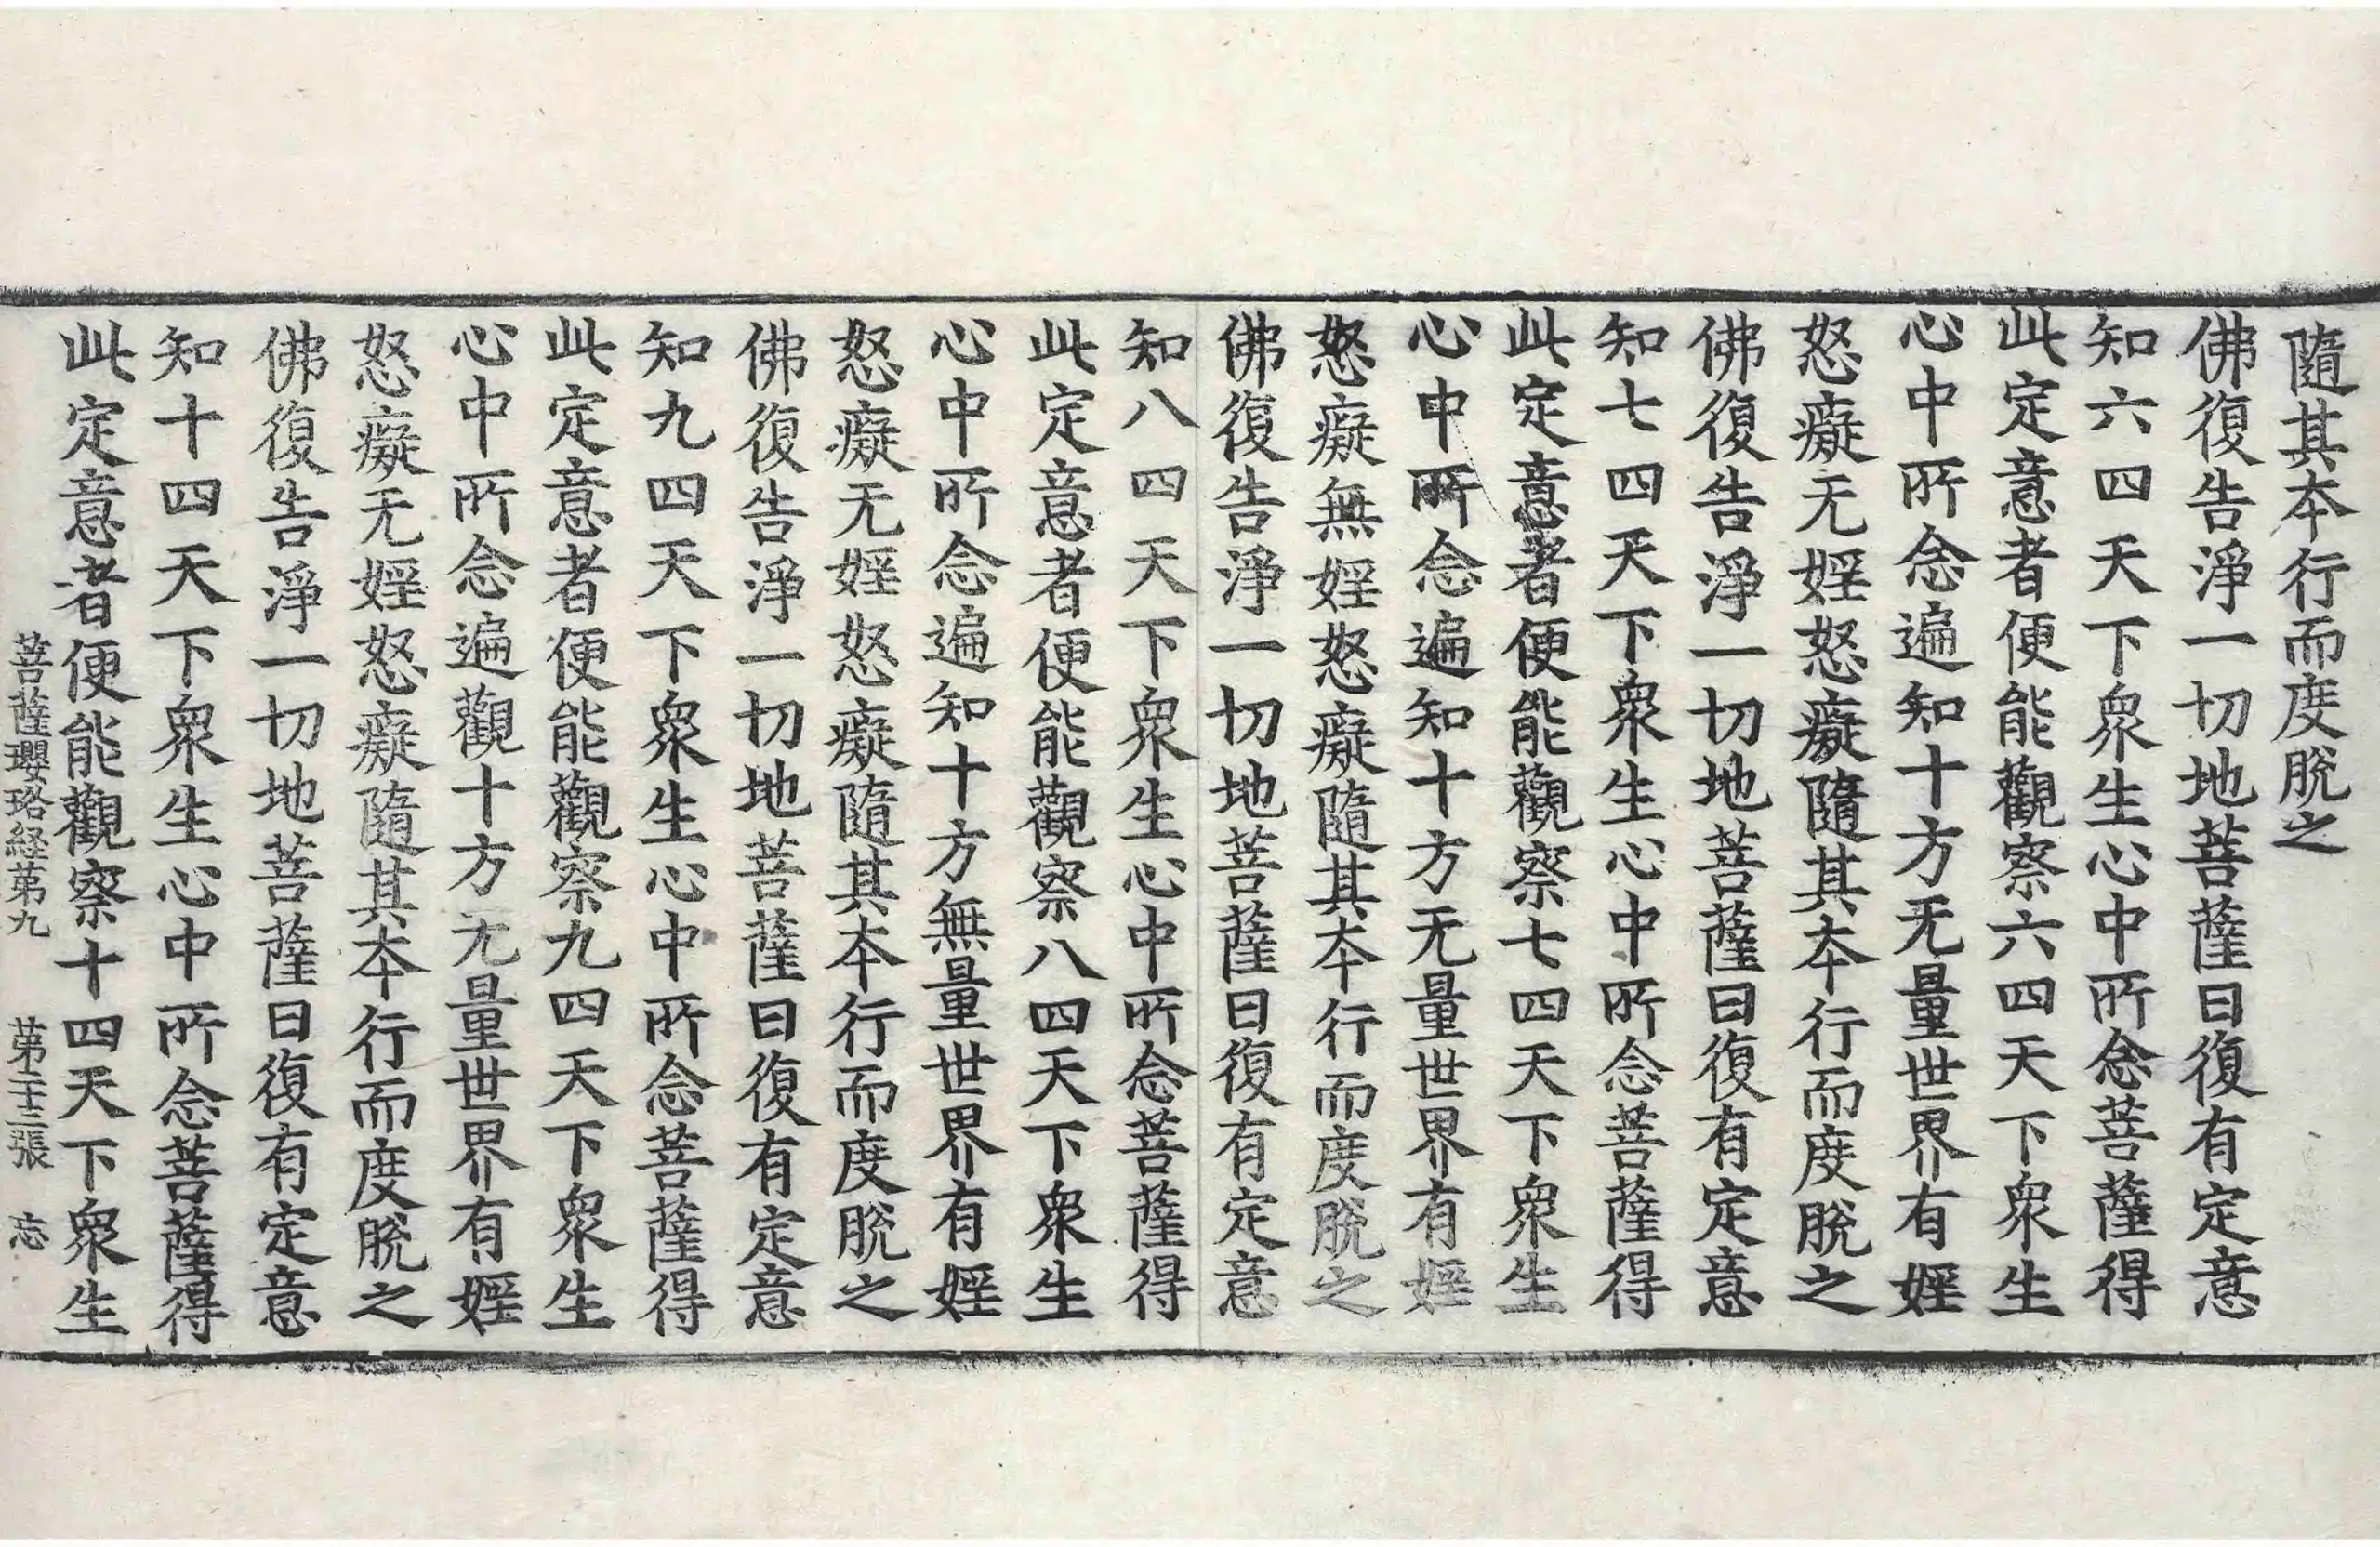 隨其本行而度脫之
佛復告淨一切地菩薩曰復有定意
知六四天下衆生心中所念菩薩得
此定意者便能觀察六四天下衆生
心中所念遍知十方无量世界有婬
怒癡无婬怒癡隨其本行而度脫之
佛復告淨一切地菩薩曰復有定意
知七四天下衆生心中所念菩薩得
此定意者便能觀察七四天下衆生
心中所念遍知十方无量世界有婬
怒癡無婬怒癡隨其本行而度脫之
佛復告淨一切地菩薩曰復有定意
知八四天下衆生心中所念菩薩得
此定意者便能觀察八四天下衆生
心中所念遍知十方無量世界有婬
怒癡无婬怒癡隨其本行而度脫之
佛復告淨一切地菩薩曰復有定意
知九四天下衆生心中所念菩薩得
此定意者便能觀察九四天下衆生
心中所念遍觀十方无量世界有婬
怒癡无婬怒癡隨其本行而度脫之
佛復告淨一切地菩薩曰復有定意
知十四天下衆生心中所念菩薩得
此定意者便能觀察十四天下衆生
菩薩瓔珞経第九 第二十三張 忘